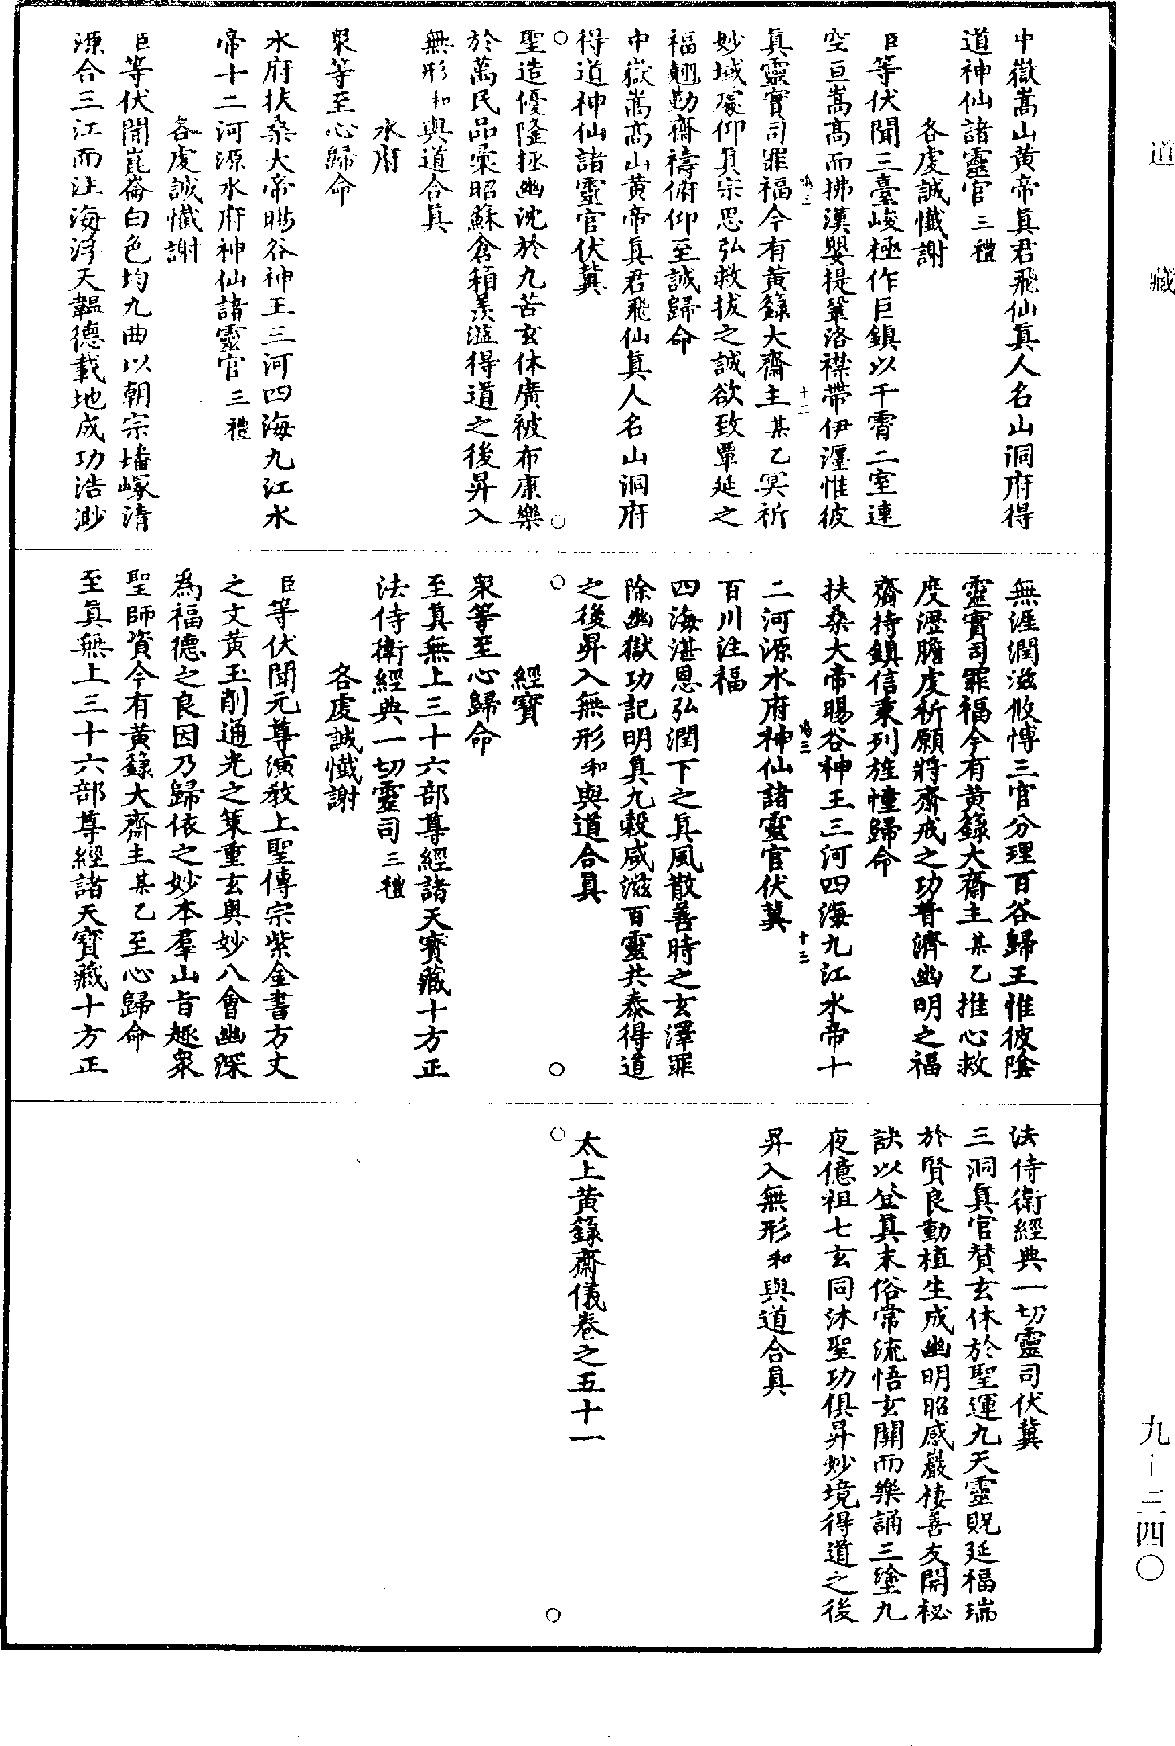 道藏
中嶽嵩山黃帝真君飛仙真人名山洞府得
道神仙諸靈官三禮
各虔誠懺謝
臣等伏聞三臺峻極作巨鎮以干霄二室連
空亘嵩高而拂漢嬰提鞏洛襟帶伊瀍惟彼
真靈實司罪福今有黃籙大齋主某乙冥祈
妙域虔仰真宗思弘救拔之誠欲致覃延之
福翹勤齋禱俯仰至誠歸命
中嶽嵩高山黃帝真君飛仙真人名山洞府
得道神仙諸靈官伏冀
聖造優隆拯幽沈於九苦玄休廣被布康樂
於萬民品彙昭蘇倉箱羨溢得道之後昇入
無形和與道合真
水府
眾等至心歸命
水府扶桑大帝暘谷神王三河四海九江水
帝十二河源水府神仙諸靈官三禮
各虔誠懺謝
臣等伏聞崑崙白色均九曲以朝宗嶓冢清
源合三江而注海浮天韞德載地成功浩渺
無涯潤滋攸慱三官分理百谷歸王惟彼陰
靈實司罪福今有黃籙大齋主某乙推心救
度瀝膽虔祈願將齋戒之功普濟幽明之福
齋持鎮信秉列旌幢歸命
扶桑大帝暘谷神王三河四海九江水帝十
二河源水府神仙諸靈官伏冀
百川注福
四海湛恩弘潤下之真風散善時之玄澤罪
除幽獄功記明真九穀咸滋百靈共泰得道
之後昇入無形和與道合真
經寶
眾等至心歸命
至真無上三十六部尊經諸天寶藏十方正
法侍衛經典一切靈司三禮
各虔誠懺謝
臣等伏聞元尊演教上聖傳宗紫金書方丈
之文黃玉削通光之策重玄奧妙八會幽深
為福德之良因乃歸依之妙本羣山旨趣眾
聖師資今有黃籙大齋主某乙至心歸命
至真無上三十六部尊經諸天寶藏十方正
法侍衛經典一切靈司伏冀
三洞真官贊玄休於聖運九天靈貺延福瑞
於賢良動植生成幽明昭感巖棲善友開祕
訣以登真末俗常流悟玄關而樂誦三塗九
夜億祖七玄同沐聖功俱昇妙境得道之後
昇入無形和與道合真
太上黃籙齋儀卷之五十一
九—三四〇